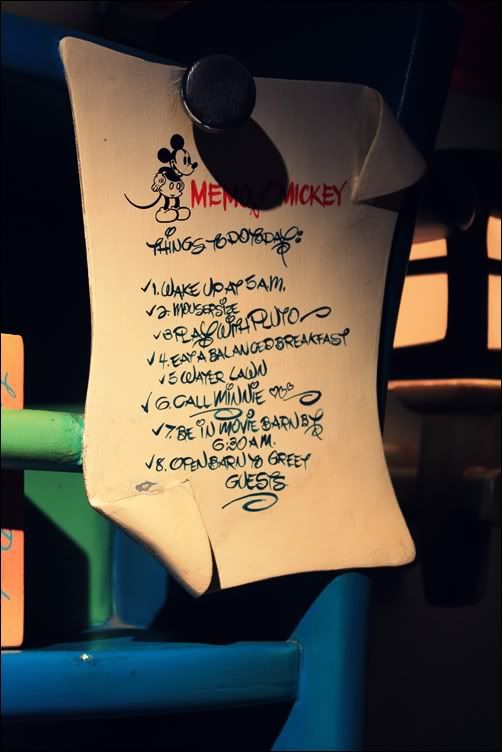 MEMO MICKEY
THINGS TO DO TODAY:
✓1. WAKE UP AT 5 AM.
✓2. MOUSERSIZE
✓3 PLAY WITH PLUTO
✓4. EAT A BALANCED BREAKFAST
✓5 WATER LAWN
✓6. CALL MINNIE ♡♡
✓7. BE IN MOVIE BARN BY
6:30 AM.
✓8. OPEN BARN TO GREET
GUESTS